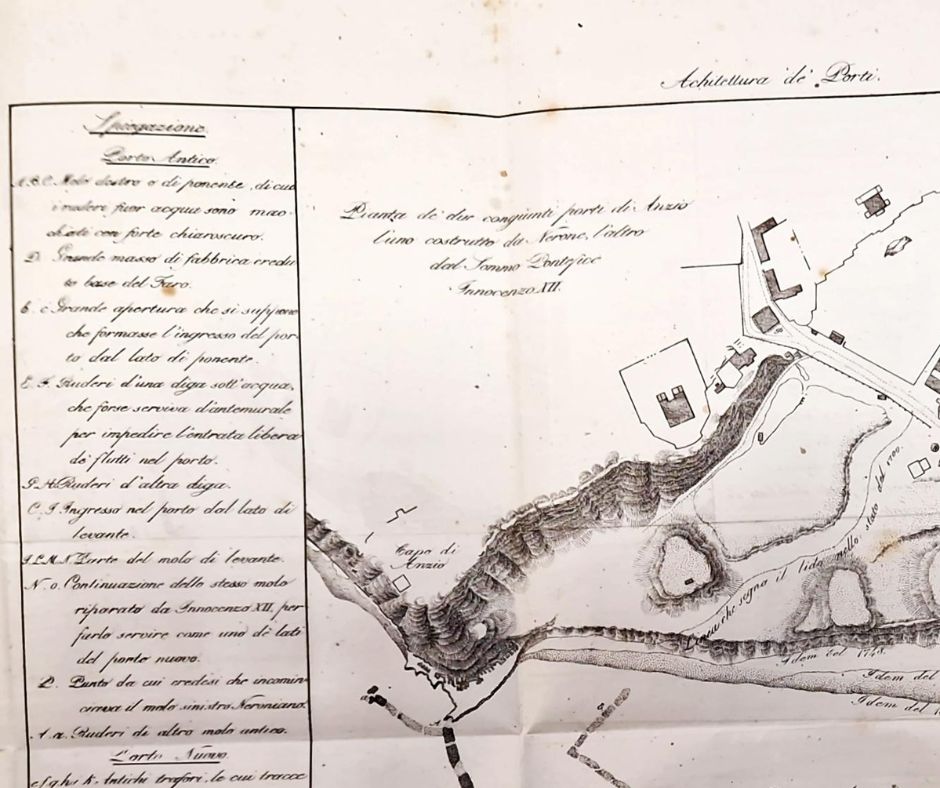 Achitettura de' Porti.
Spiegazione.
Porto Antico.
A.B.C. Molo destro o di ponente, di cui
i ruderi fuor acqua sono mac-
chiati con forte chiaroscuro.
D. Grande masso di fabbrica credu
to base del Faro.
E. e Grande apertura che si suppone
che formasse l'ingresso del por-
to dal lato di ponente.
E. F. Ruderi d'una diga sott'acqua,
che forse serviva d'antemurale
per impedire l'entrata libera
de' flutti nel porto.
G. H. Ruderi d'altra diga.
C. I. Ingresso nel porto dal lato di
levante.
I.L.M.N. Parte del molo di levante.
N. o. Continuazione dello stesso molo
riparato da Innocenzo XII, per
farlo servire come uno de' lati
del porto nuovo.
P. Punto da cui credesi che incomin
ciava il molo sinistro Neroniano.
A. a. Ruderi di altro molo antico.
Porto Nuovo.
Antichi trafori, le cui tracce
Pianta de' due congiunti porti di Anzio
l'uno costrutto da Nerone, l'altro
dal Sommo Pontefice
Innocenzo XII.
Capo di
Anzio
Linea che segna il lido nello stato del 1700.
Idem del 1748.
Idem del
Idem del 1
a
A
G